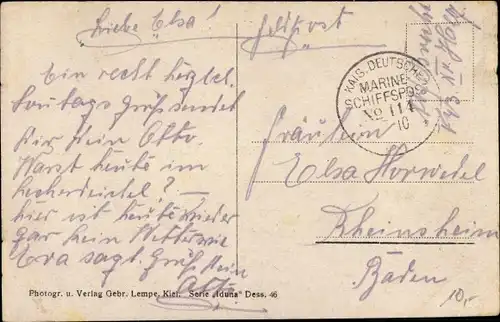 Liebe Elsa!
Feldpost
Ein recht herzl.
Sonntags Gruß sendet
Dir Dein Otto.
Warst heute im
hier ist heute wieder
gar kein Wetter wie
Eva sagt. Gruß Dein
Otto
KAIS. DEUTSCHE
MARINE
SCHIFFSPOST
No 114
10
Fräulein
Elsa Horwedel
Rheinsheim
Baden
10,-
Photogr. u. Verlag Gebr. Lempe, Kiel. Serie „Iduna" Dess. 46